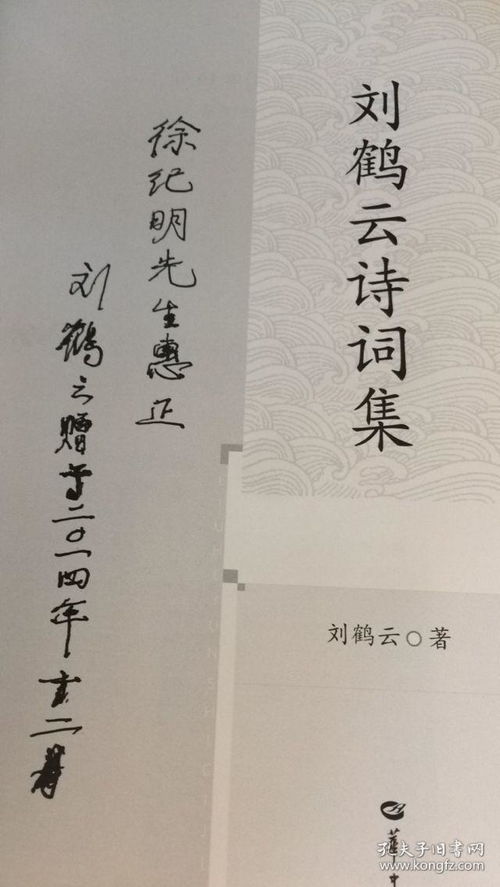 刘鹤云诗词集
刘鹤云○著
華中
徐纪明先生惠正
刘鹤云赠于二〇一四年
孔夫子旧书网
www.kongfz.com